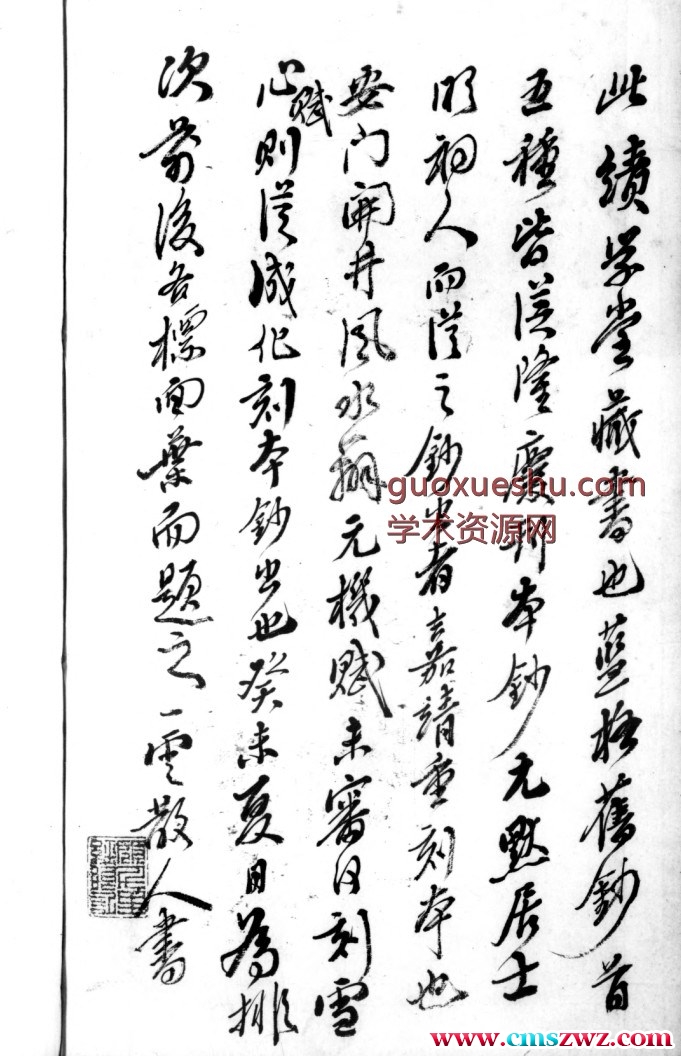 此績学堂藏書也藍格舊鈔首
五種皆從隆慶刊本鈔元默居士
明初人而從之鈔出者嘉靖重刻本也
安门開井風水 元機賦未審何刻雪
心賦則從成化刻本鈔出也癸未夏日為排
次前後各標面葉而題之一雲散人書
guoxueshu.com
学术资源网
www.cmszwz.com